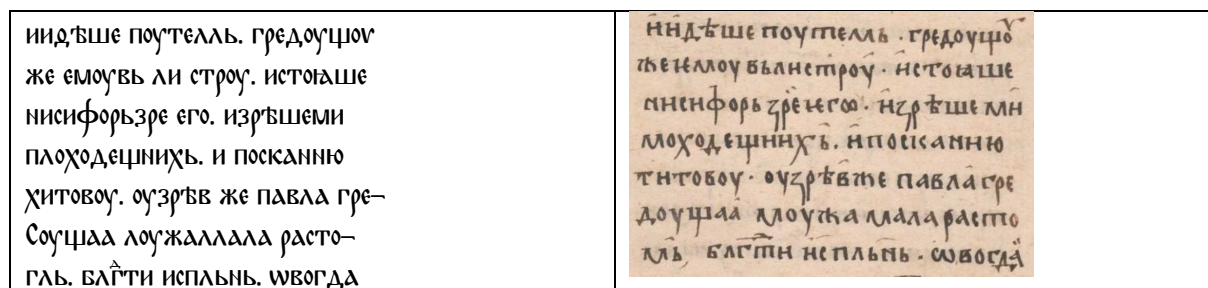 иидѣше поутелль. гредоущоу
же емоувь ли строу. истоꙗше
нисифорьзре его. изрѣшеми
плоходещнихь. и посканню
хитовоу. оузрѣв же павла гре¬
Соущаа лоужаллала расто¬
гль. блгⷣти испльнь. ѡвогда
иидѣше поутемь · гредоущоу
же ѥмоу вьлистроу · истоꙗше
нисифорь зре ѥгѡ · изрѣше ми
моходещиихь. ипосканию
титовоу · оузрѣвже павла гре
доущаа моужа мала расто
мь благⷣти испльнь · ѡвогда